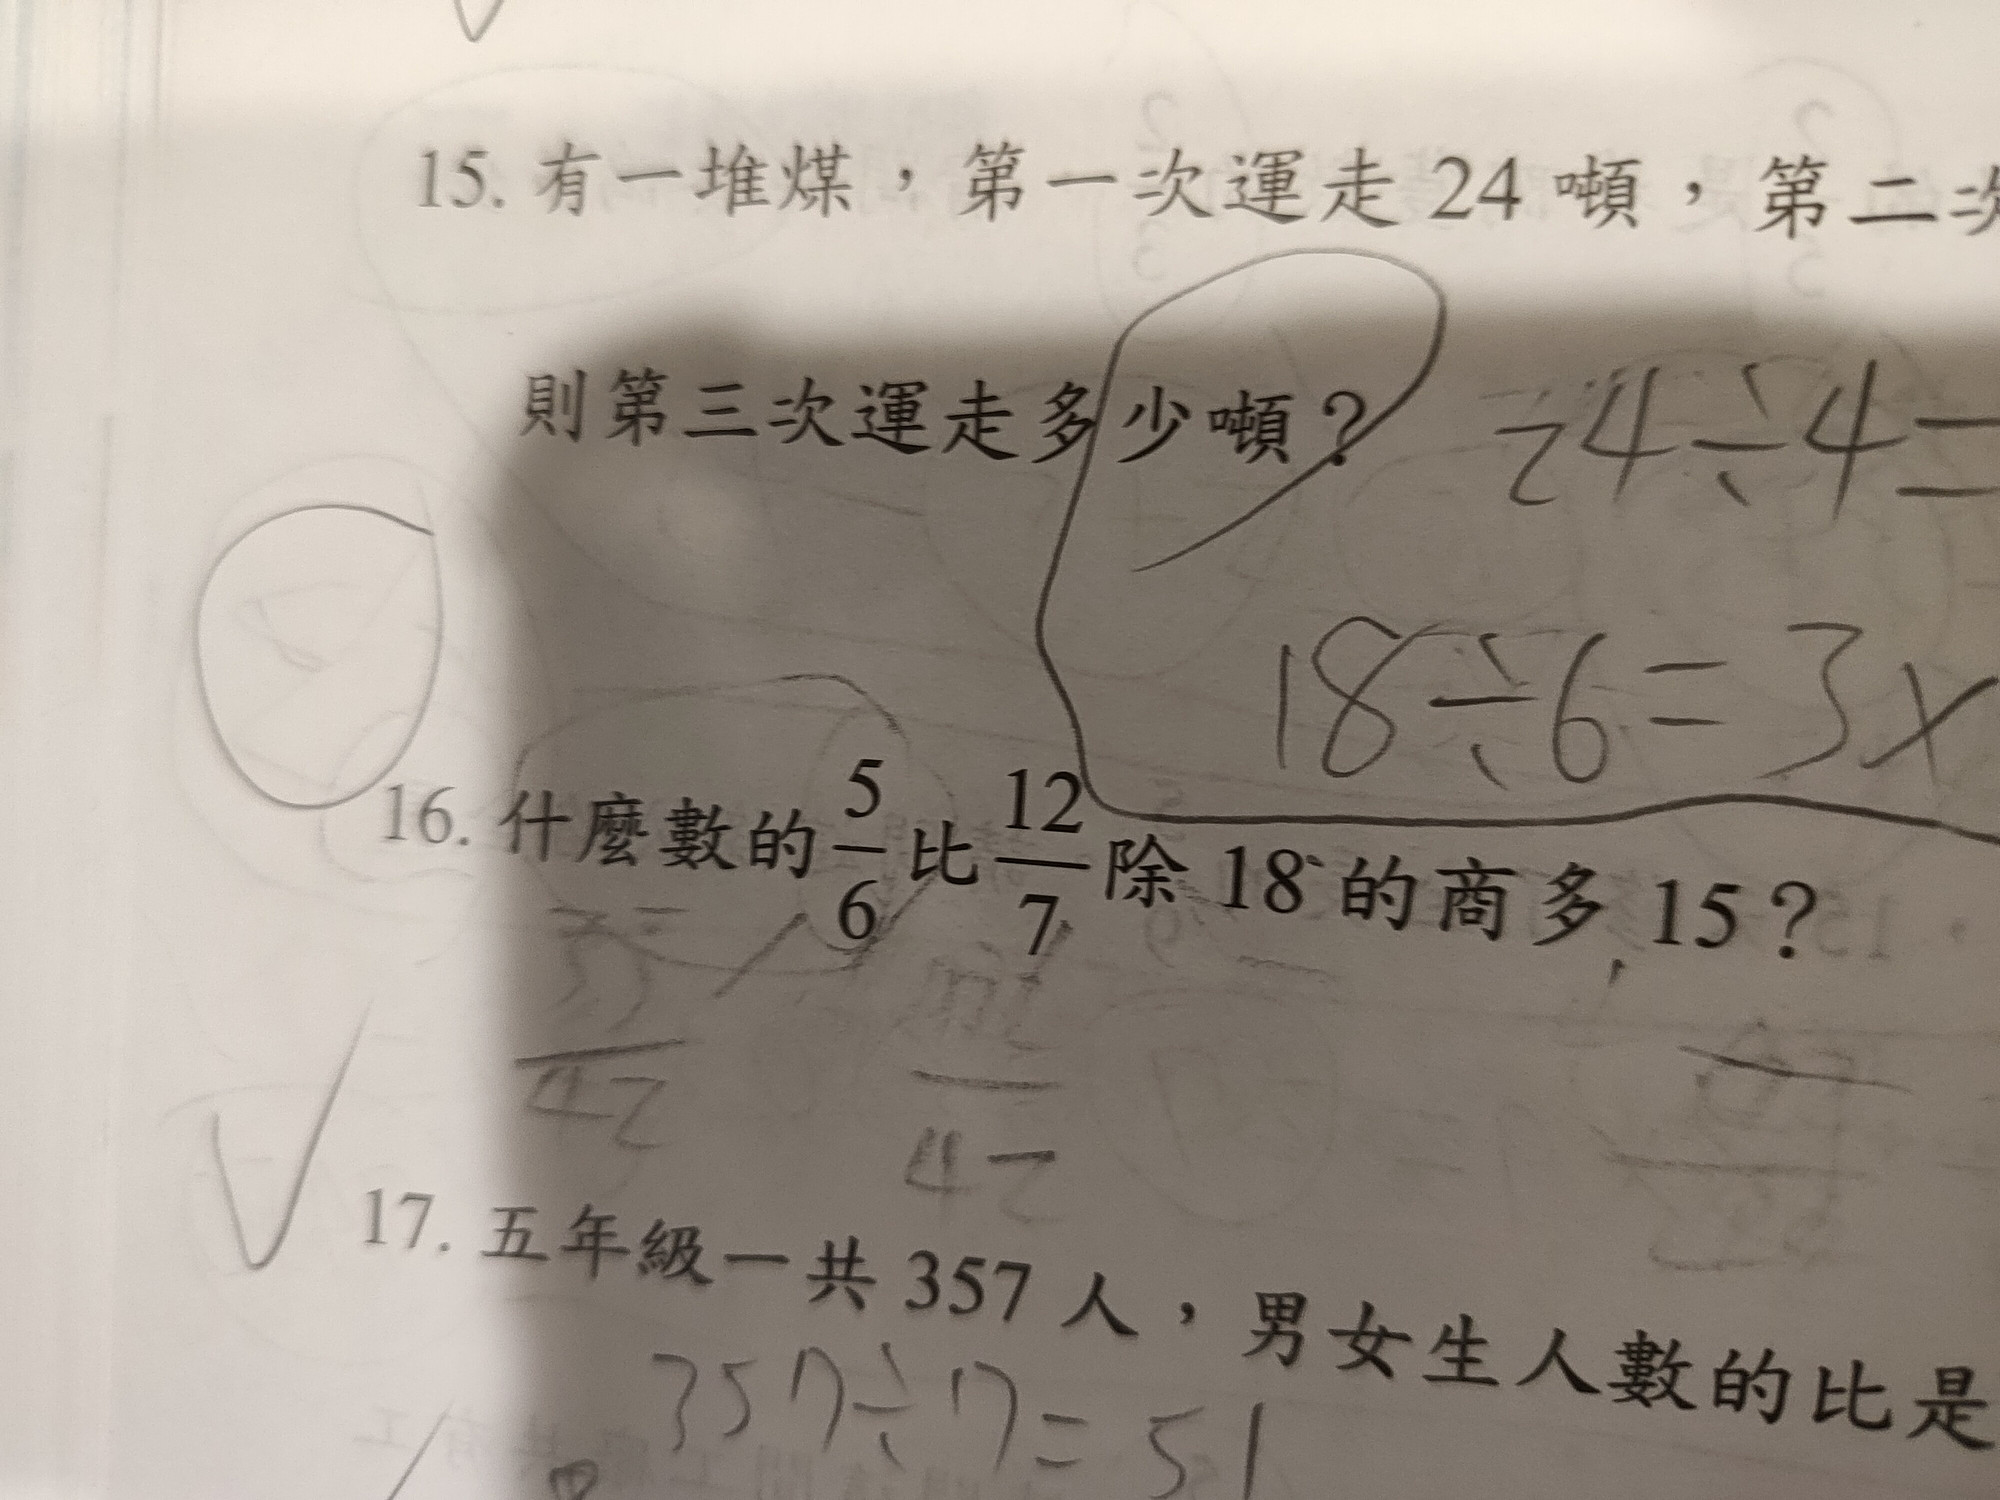 15. 有一堆煤，第一次運走 24 噸，第二次
則第三次運走多少噸？ 24÷4=
18÷6=3x
16. 什麼數的 5/6 比 12/7 除 18 的商多 15？
42
42
17. 五年級一共 357 人，男女生人數的比是
357÷7=51